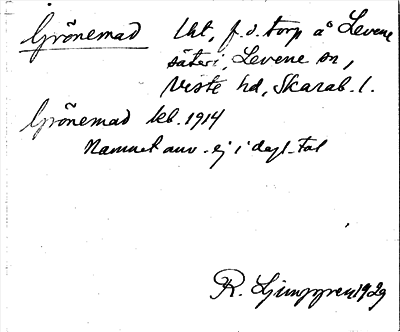 Grönemad lht, f.d. torp å Levene
säteri, Levene sn,
Viste hd, Skarab. l.
Grönemad kb. 1914
Namnet anv. ej i dagl. tal
R. Ljunggren 1929